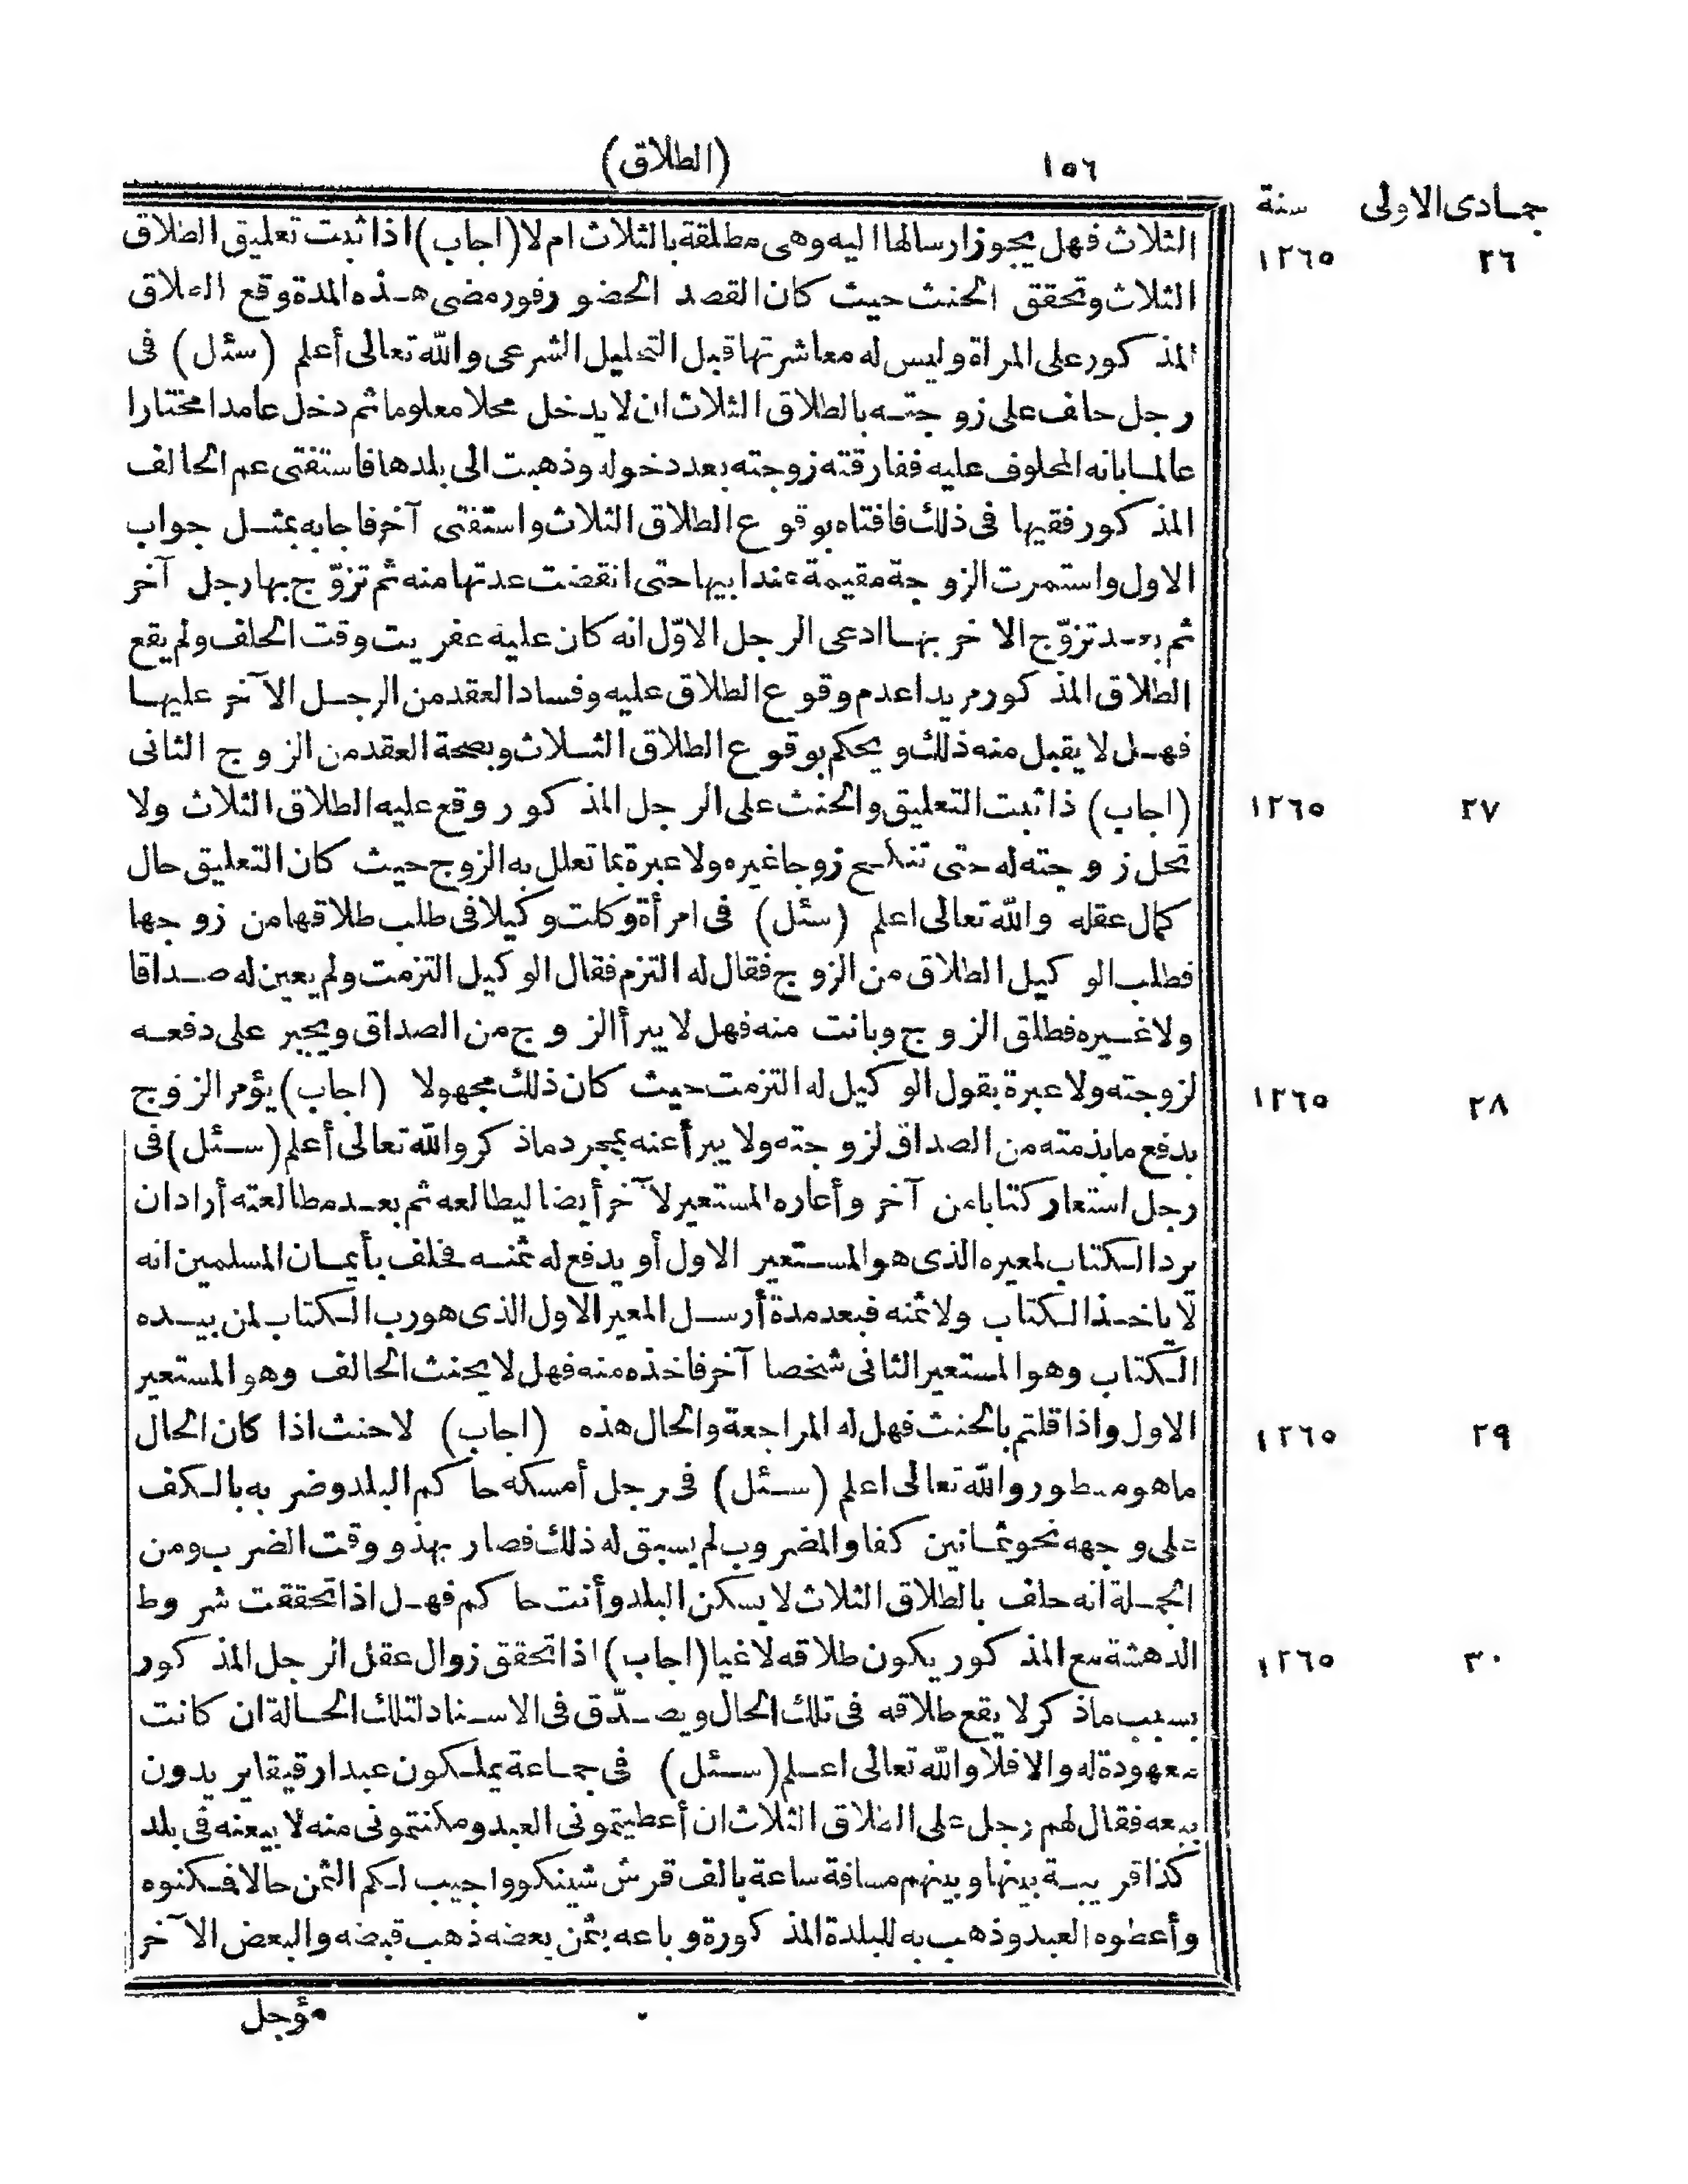 ١٥٦ (الطلاق)
جمادى الاولى سنة
٢٦ ١٢٦٥
الثلاث فهل يجوز ارسالها اليه وهى مطلقة بالثلاث ام لا (اجاب) اذا ثبت تعليق الطلاق
الثلاث وتحقق الحنث حيث كان القصد الحضور فور مضى هذه المدة وقع الطلاق
المذكور على المراة وليس له معاشرتها قبل التحليل الشرعى والله تعالى أعلم (سئل) فى
رجل حلف على زوجته بالطلاق الثلاث ان لا يدخل محلا معلوما ثم دخل عامدا مختارا
عالما بانه المحلوف عليه ففارقته زوجته بعد دخوله وذهبت الى بلدها فاستفتى عم الحالف
المذكور فقيها فى ذلك فافتاه بوقوع الطلاق الثلاث واستفتى آخر فاجابه بمثل جواب
الاول واستمرت الزوجة مقيمة عند ابيها حتى انقضت عدتها منه ثم تزوّج بها رجل آخر
ثم بعد تزوّج الاخر بها ادعى الرجل الاوّل انه كان عليه عفريت وقت الحلف ولم يقع
الطلاق المذكور مريدا عدم وقوع الطلاق عليه وفساد العقد من الرجل الآخر عليها
فهل لا يقبل منه ذلك ويحكم بوقوع الطلاق الثلاث وبصحة العقد من الزوج الثانى
٢٧ ١٢٦٥
(اجاب) ذا ثبت التعليق والحنث على الرجل المذكور وقع عليه الطلاق الثلاث ولا
تحل زوجته له حتى تنكح زوجا غيره ولا عبرة بما تعلل به الزوج حيث كان التعليق حال
كمال عقله والله تعالى اعلم (سئل) فى امرأة وكلت وكيلا فى طلب طلاقها من زوجها
فطلب الوكيل الطلاق من الزوج فقال له التزم فقال الوكيل التزمت ولم يعين له صداقا
ولا غيره فطلق الزوج وبانت منه فهل لا يبرأ الزوج من الصداق ويجبر على دفعه
٢٨ ١٢٦٥
لزوجته ولا عبرة بقول الوكيل له التزمت حيث كان ذلك مجهولا (اجاب) يؤمر الزوج
بدفع ما بذمته من الصداق لزوجته ولا يبرأ عنه بمجرد ما ذكر والله تعالى أعلم (سئل) فى
رجل استعار كتابا من آخر وأعاره المستعير لآخر أيضا ليطالعه ثم بعد مطالعته أراد ان
يرد الكتاب لمعيره الذى هو المستعير الاول أو يدفع له ثمنه فحلف بأيمان المسلمين انه
لا ياخذ الكتاب ولا ثمنه فبعد مدة أرسل المعير الاول الذى هو رب الكتاب لمن بيده
الكتاب وهو المستعير الثانى شخصا آخر فاخذه منه فهل لا يحنث الحالف وهو المستعير
٢٩ ١٢٦٥
الاول واذا قلتم بالحنث فهل له المراجعة والحال هذه (اجاب) لا حنث اذا كان الحال
ما هو مسطور والله تعالى اعلم (سئل) فى رجل أمسكه حاكم البلد وضربه بالكف
على وجهه نحو ثمانين كفا والمضروب لم يسبق له ذلك فصار يهذو وقت الضرب ومن
الجملة انه حلف بالطلاق الثلاث لا يسكن البلد وأنت حاكم فهل اذا تحققت شروط
٣٠ ١٢٦٥
الدهشة مع المذكور يكون طلاقه لاغيا (اجاب) اذا تحقق زوال عقل الرجل المذكور
بسبب ما ذكر لا يقع طلاقه فى تلك الحال ويصدّق فى الاسناد لتلك الحالة ان كانت
معهودة له والا فلا والله تعالى اعلم (سئل) فى جماعة يملكون عبدا رقيقا يريدون
بيعه فقال لهم رجل على الطلاق الثلاث ان أعطيتمونى العبد ومكنتمونى منه لابيعنه فى بلد
كذا قريبة بينها وبينهم مسافة ساعة بالف قرش شينكو واجيب لكم الثمن حالا فمكنوه
وأعطوه العبد وذهب به للبلدة المذكورة وباعه بثمن بعضه ذهب قبضه والبعض الآخر
مؤجل